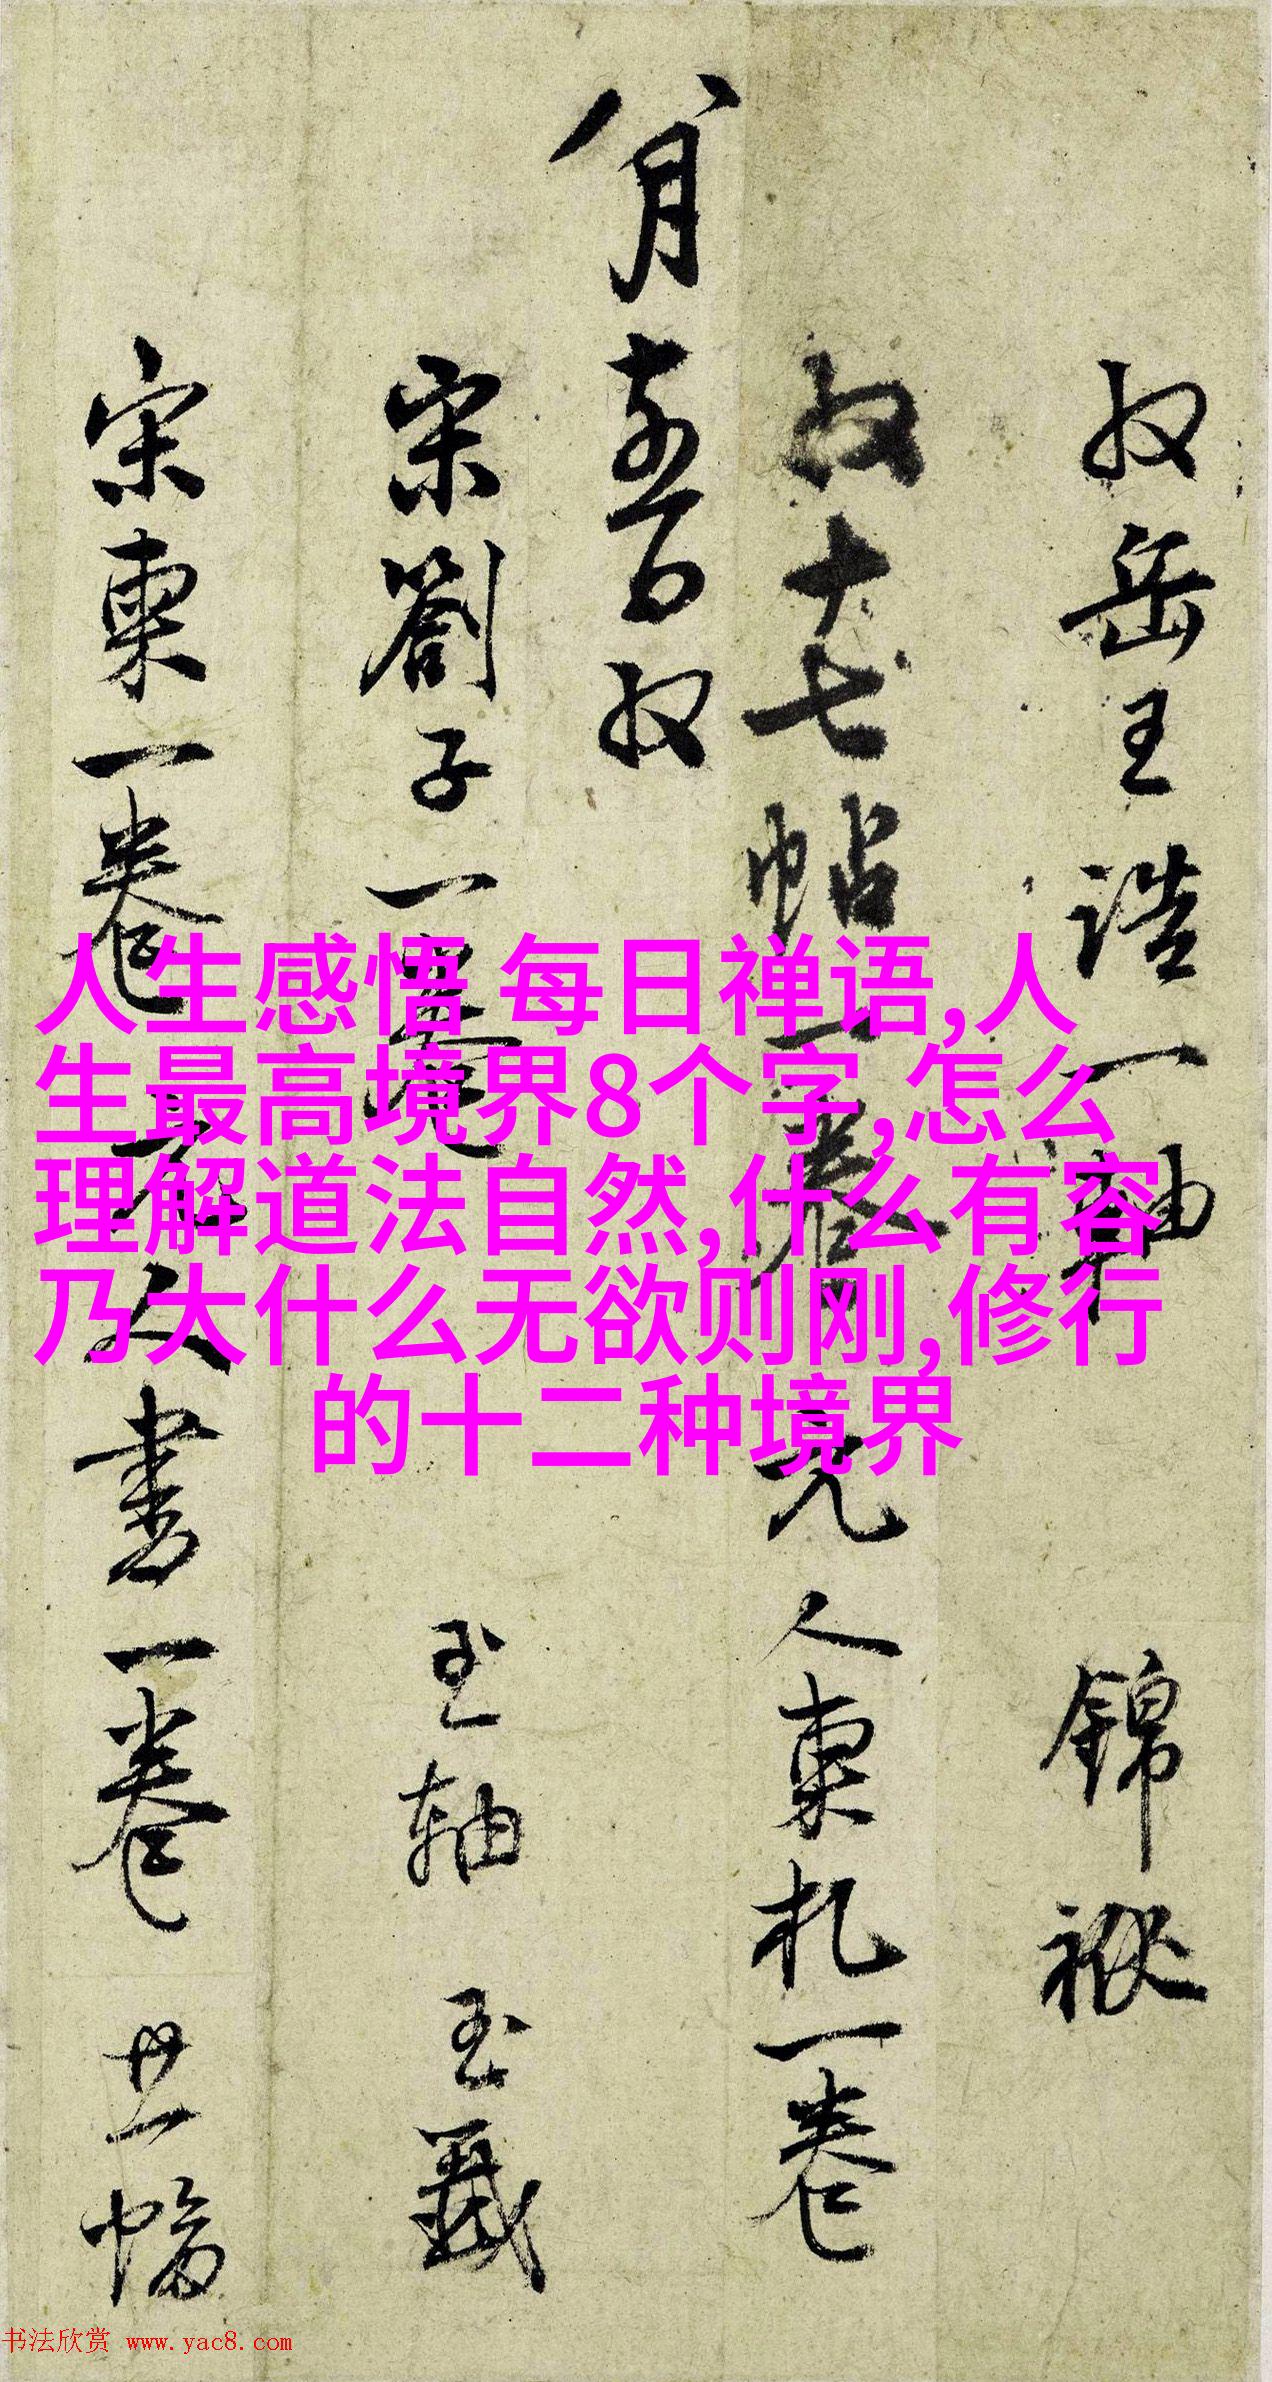 收岳王誥一軸 錦裱
收十七帖一卷 元人柬札一卷
八月
收
宋劄子一卷 玉軸 玉籤
宋柬一卷 元人書一卷 廿二幅
人生感悟 每日禅语,人
生最高境界8个字,怎么
理解道法自然,什么有容
乃大什么无欲则刚,修行
的十二种境界
书法欣赏 www.yac8.com